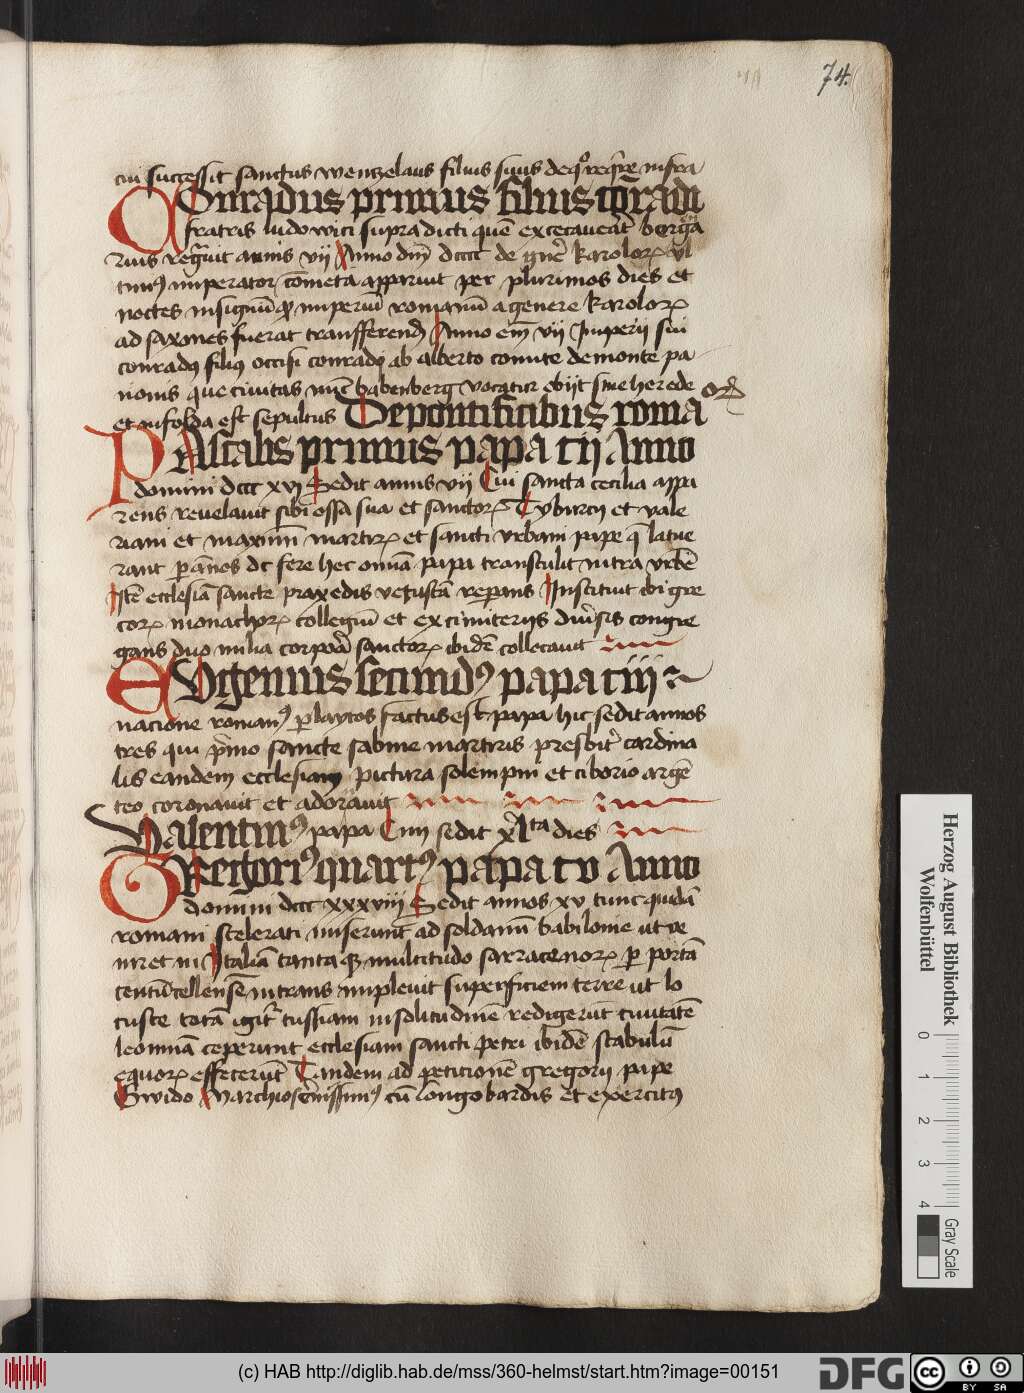 74.
cui successit sanctus wentzelaus filius suus de quo require infra
Conradus primus filius conradi
fratris ludowici supradicti quē excecaueāt berēga
rius regnuit annis vii Anno dm̄ dcccc de genē karoloꝝ vl
timꝰ imperator, cometa apparuit per plurimos dies et
noctes insignū qͥ imperiū romanū a genere karoloꝝ
ad saxones fuerat transfferend̄ Anno em̄ vii Imperij sui
conradꝰ filiꝰ occisi conradi ab alberto comite de monte pa
nionis que ciuitas nūc babenberg vocatur obijt sine herede
et in folda est sepultus De pontificibus roma noꝝ
PAscalis primus papa cij Anno
domini dccc xvj Sedit annis vii Cui sancta cecilia appa
rens reuelauit sibi ossa sua et sanctoꝝ Tyburcij et vale
riani et maximi martirꝝ et sancti vrbani pape q̄ latue
rant ꝑ annos dc fere hec omnia papa transtulit intra vrbē
Istē ecclesiā sancte praxedis vetustā reparans Instituit ibi gre
coꝝ monachoꝝ collegiū et ex cimiterijs diuersis congre
gans duo milia corpora sanctoꝝ ibidē collocauit
EUgenius secundꝰ papa ciij
nacione romanꝰ ꝑ laycos factus est papa hic sedit annos
tres qui primo sancte sabine martiris presbiter cardina
lis eandem ecclesiam pictura solempni et ciborio argē
teo coronauit et adorauit
Valentinꝰ papa Ciiij sedit xlta dies
GRegoriꝰ quartꝰ papa cv Anno
domini dccc xxxviij Sedit annos xv tunc quidā
romani scelerati miserunt ad soldanū babilonie ut ve
niret in Italiā tanta qꝫ multitudo sarracenoꝝ ꝑ portā
centūcellensē intrans impleuit superficiem terre ut lo
custe totā igitr tussiam in solitudinē redigerūt ciuitatē
leoninā ceperunt ecclesiam sancti petri ibidē stabulū
equoꝝ effecerūt Tandem ad peticionē gregorij pape
Gwido Marchio serēissimꝰ cū longobardis et exercitꝰ
Herzog August Bibliothek
Wolfenbüttel
0 1 2 3 4
Gray Scale
(c) HAB http://diglib.hab.de/mss/360-helmst/start.htm?image=00151
DFG
cc BY SA